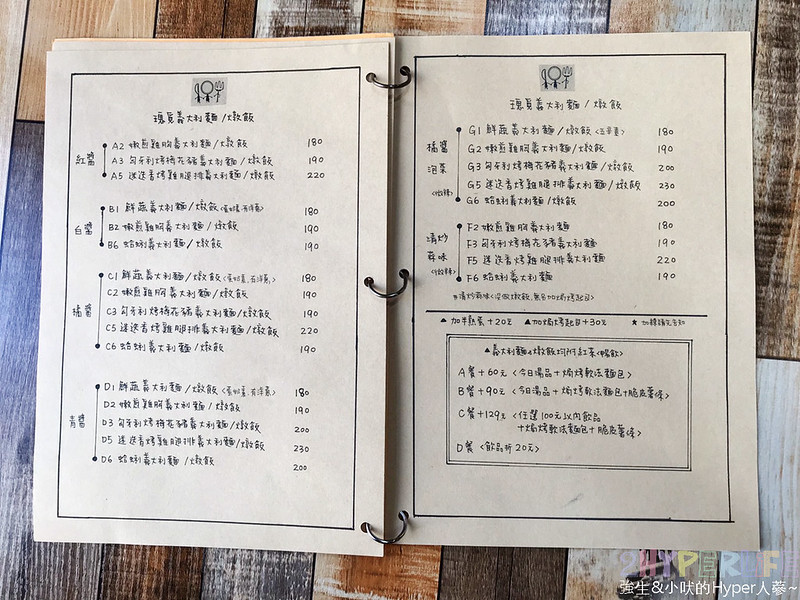 義大利麵/燉飯
紅醬
A2 嫩煎雞胸義大利麵/燉飯 180
A3 匈牙利烤梅花豬義大利麵/燉飯 190
A5 迷迭香烤雞腿排義大利麵/燉飯 220
白醬
B1 鮮蔬義大利麵/燉飯 180
B2 嫩煎雞胸義大利麵/燉飯 190
B6 蛤蜊義大利麵/燉飯 190
橘醬
C1 鮮蔬義大利麵/燉飯 180
C2 嫩煎雞胸義大利麵/燉飯 190
C3 匈牙利烤梅花豬義大利麵/燉飯 190
C5 迷迭香烤雞腿排義大利麵/燉飯 220
C6 蛤蜊義大利麵/燉飯 190
青醬
D1 鮮蔬義大利麵/燉飯 180
D2 嫩煎雞胸義大利麵/燉飯 190
D3 匈牙利烤梅花豬義大利麵/燉飯 200
D5 迷迭香烤雞腿排義大利麵/燉飯 230
D6 蛤蜊義大利麵/燉飯 200
義大利麵/燉飯
橘醬
泡菜
<微辣>
G1 鮮蔬義大利麵/燉飯<五辛素> 180
G2 嫩煎雞胸義大利麵/燉飯 190
G3 匈牙利烤梅花豬義大利麵/燉飯 200
G5 迷迭香烤雞腿排義大利麵/燉飯 230
G6 蛤蜊義大利麵/燉飯 200
清炒
蒜味
<微辣>
F2 嫩煎雞胸義大利麵 180
F3 匈牙利烤梅花豬義大利麵 190
F5 迷迭香烤雞腿排義大利麵 220
F6 蛤蜊義大利麵 190
※清炒蒜味<沒做燉飯,無合加焗烤起司>
▲加半熟蛋+20元 ▲加焗烤起司+30元 ★加辣請先告知
▲義大利麵&燉飯均附紅茶<暢飲>
A餐+60元 <今日湯品+焗烤軟法麵包>
B餐+90元 <今日湯品+焗烤軟法麵包+脆皮薯條>
C餐+129元 <任選100元以內飲品
+焗烤軟法麵包+脆皮薯條>
D餐 <飲品折20元>
2HYPERLIFE
強生&小吠的Hyper人蔘~